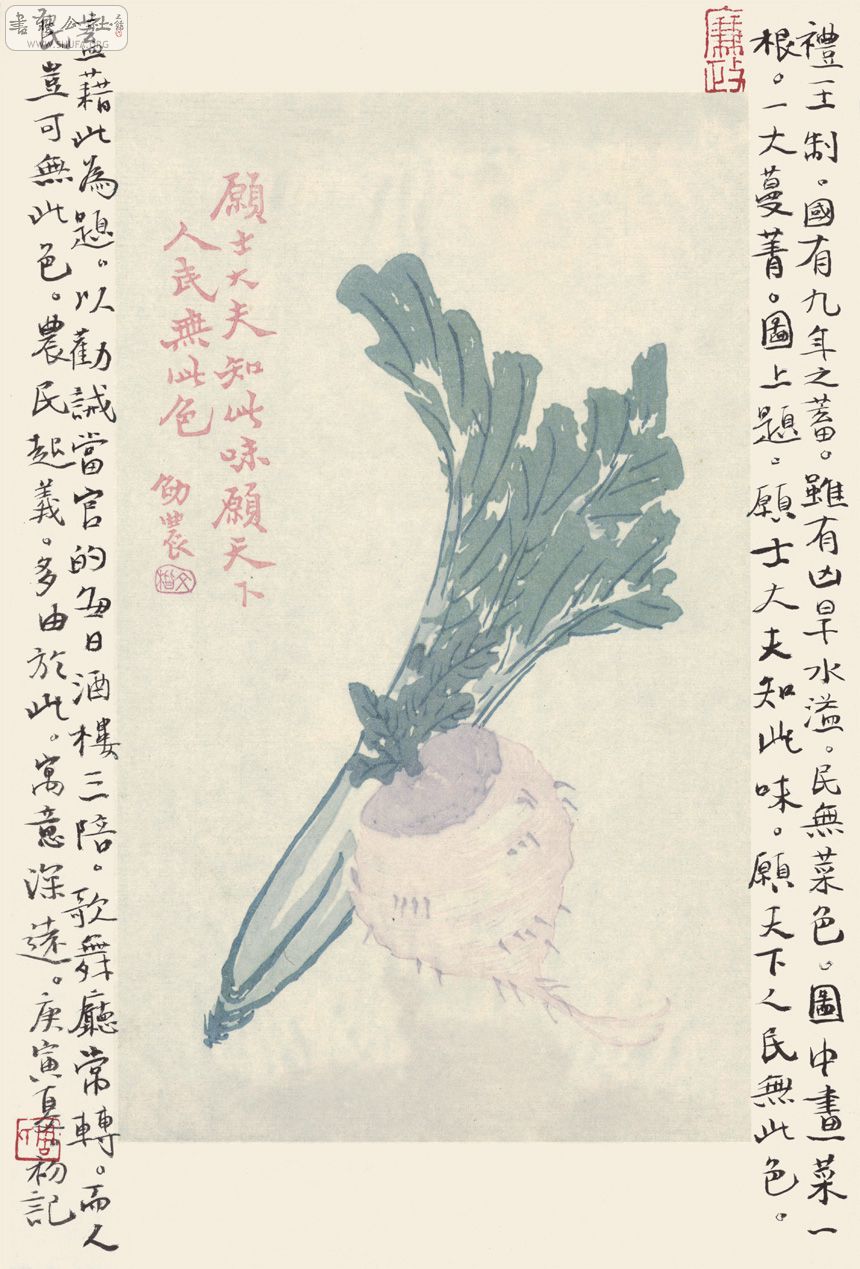 禮王制。國有九年之蓄。雖有凶旱水溢。民無菜色。圖中畫菜一
根。一大蔓菁。圖上題。願士大夫知此味。願天下人民無此色。
廉政
願士大夫知此味願天下
人民無此色
農
蓋藉此為題。以勸誡當官的每日酒樓三陪。歌舞廳常轉。而人
民豈可無此色。農民起義。多由於此。寓意深遠。庚寅夏初記
WWW.SHUFA.ORG